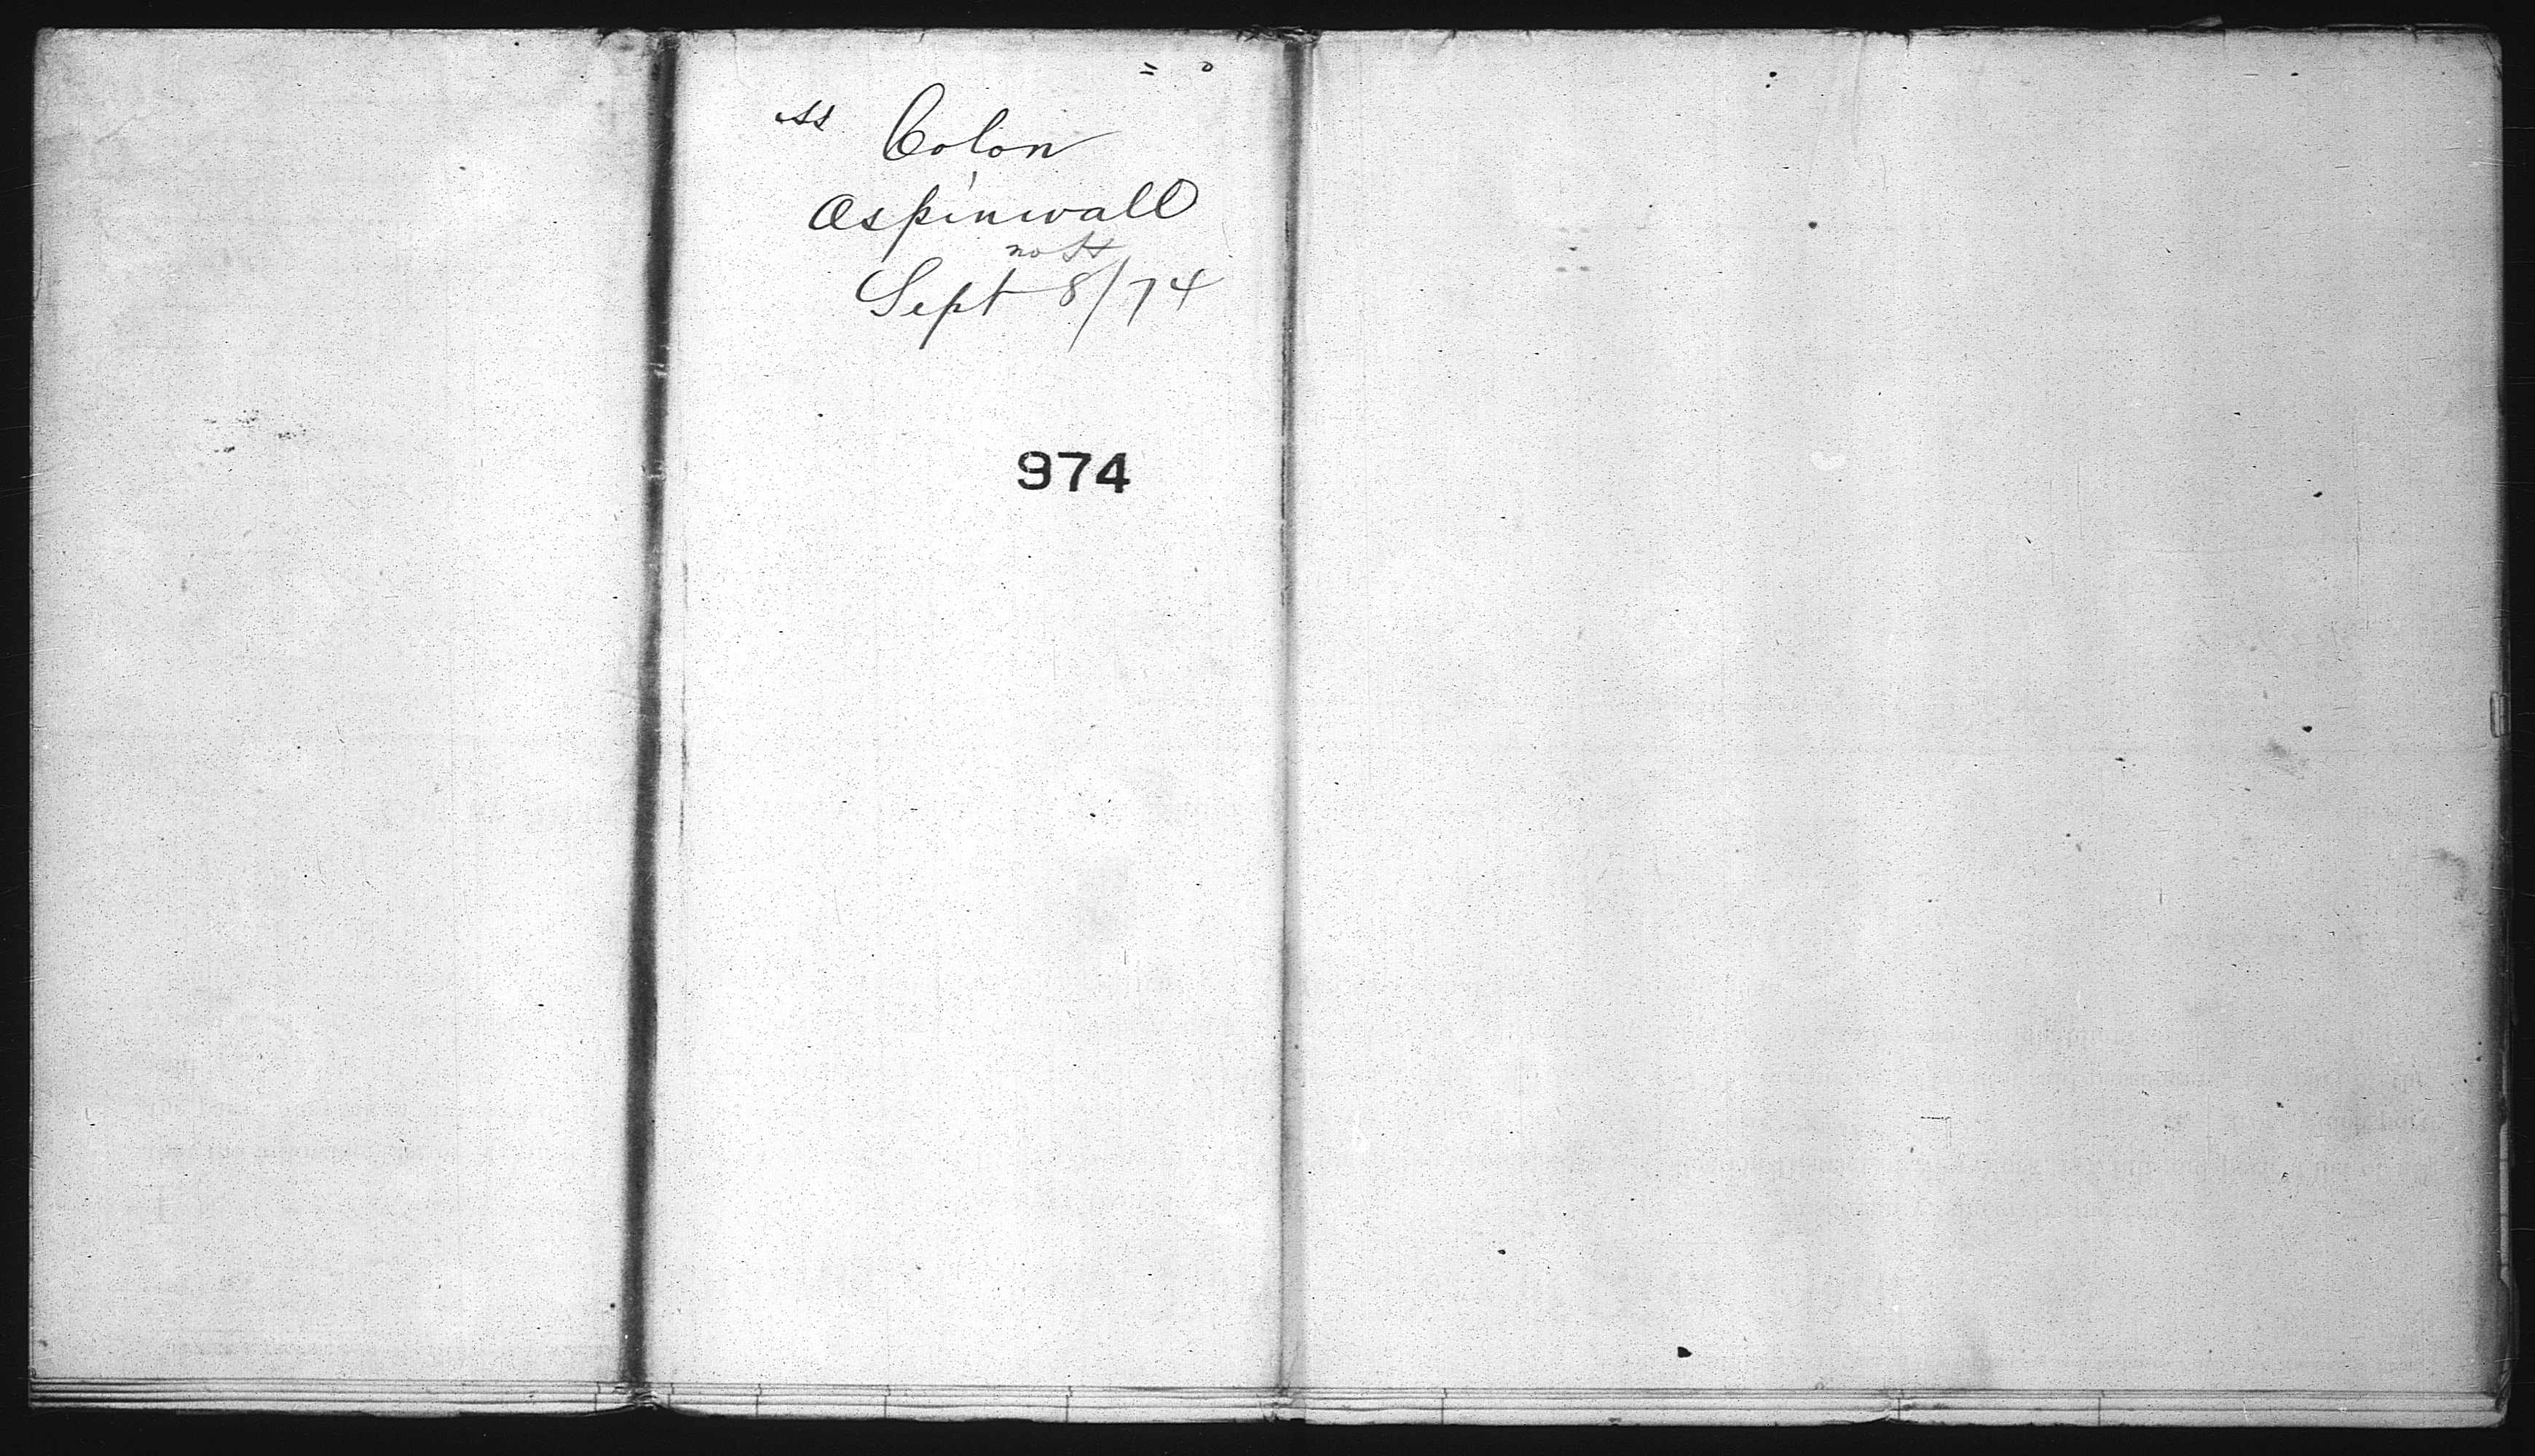 ss Colon
Aspinwall
no St
Sept 8/74
974